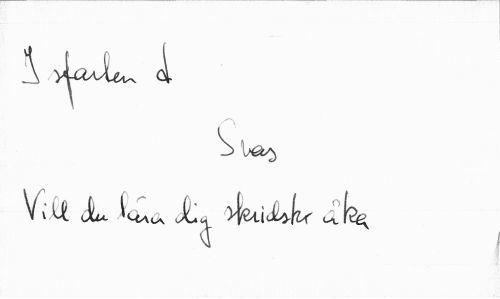 I sfarten d
Svas
Vill du lära dig skridskr åka